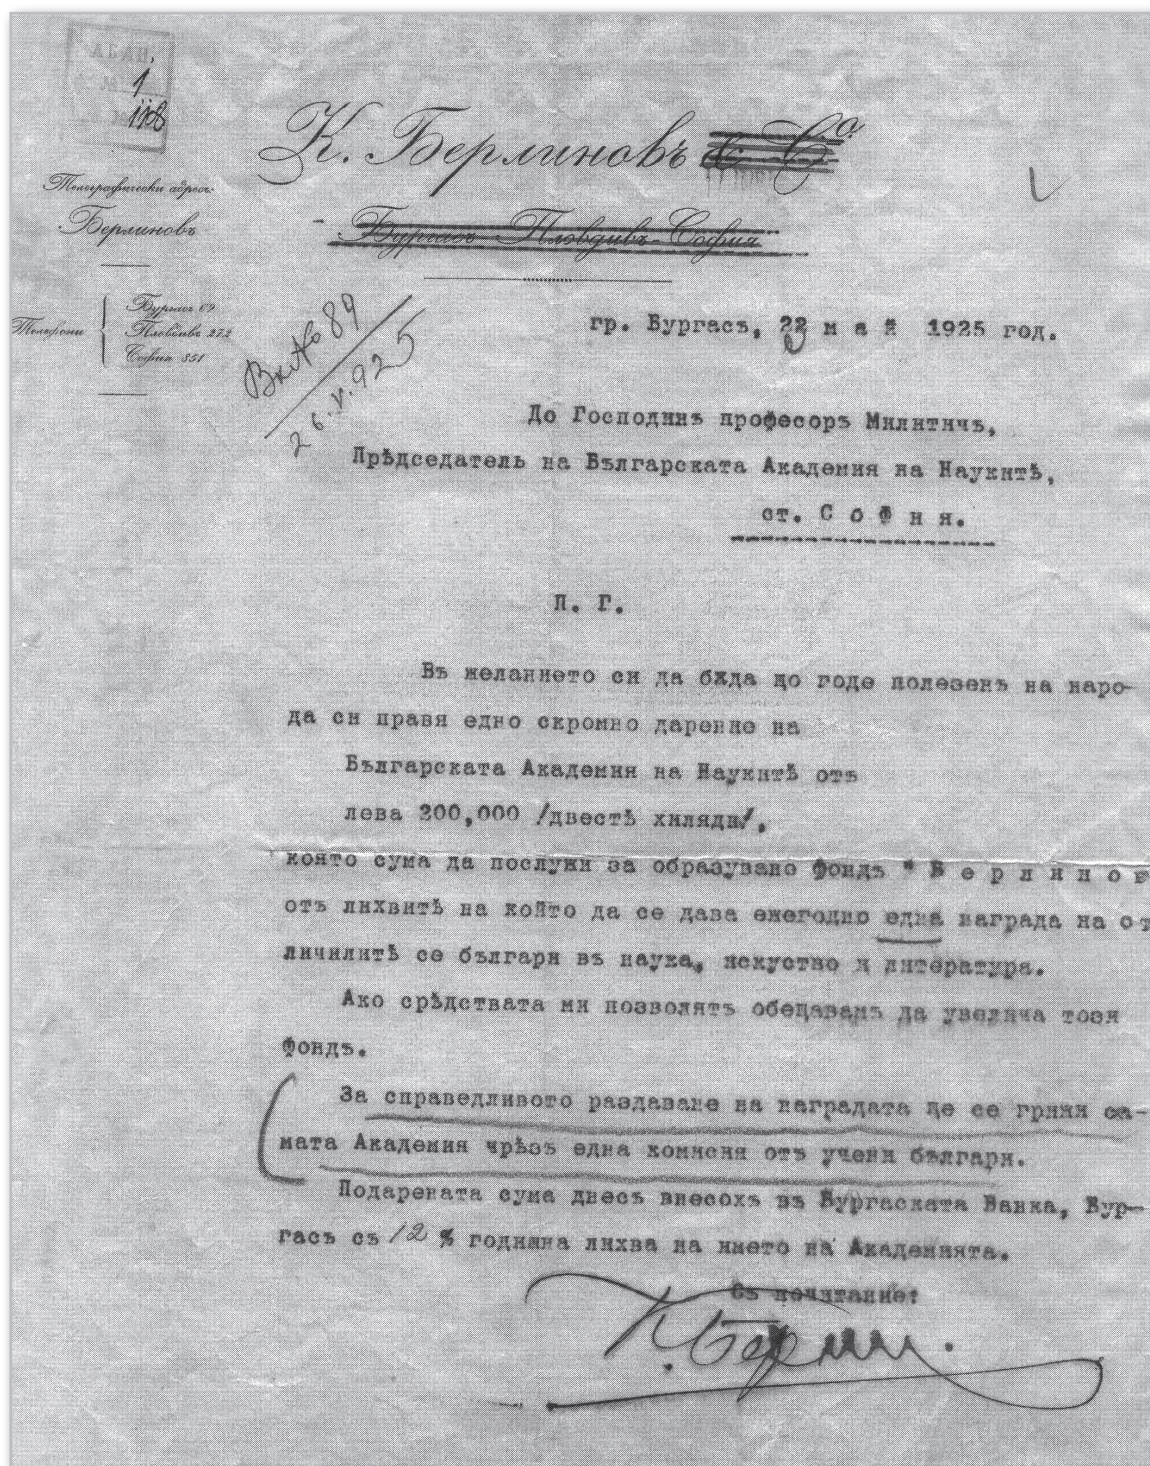 АБАН.
1
1108
К. Берлиновъ & Со.
Телеграфически адресъ:
Берлиновъ
Бургасъ - Пловдивъ - София
Телефони
Бургасъ 69
Пловдивъ 272
София 351
Вх № 89
26.V.925
гр. Бургасъ, 23 м а й 1925 год.
До Господинъ професоръ Милитичъ,
Прѣдседатель на Българската Академия на Наукитѣ,
ст. С о ф и я.
П. Г.
Въ желанието си да бѫда що годе полезенъ на наро-
да си правя едно скромно дарение на
Българската Академия на Наукитѣ отъ
лева 200,000 /двестѣ хиляди/,
която сума да послужи за образувано фондъ " Б е р л и н о в
отъ лихвитѣ на който да се дава ежегодно една награда на от
личилитѣ се българи въ наука, искуство и литература.
Ако срѣдствата ми позволятъ обещавамъ да увелича този
фондъ.
За справедливото раздаване на наградата ще се грижи са-
мата Академия чрѣзъ една комисия отъ учени българи.
Подарената сума днесъ внесохъ въ Бургаската Банка, Бур-
гасъ съ 12 % годишна лихва на името на Академията.
Съ почитание: